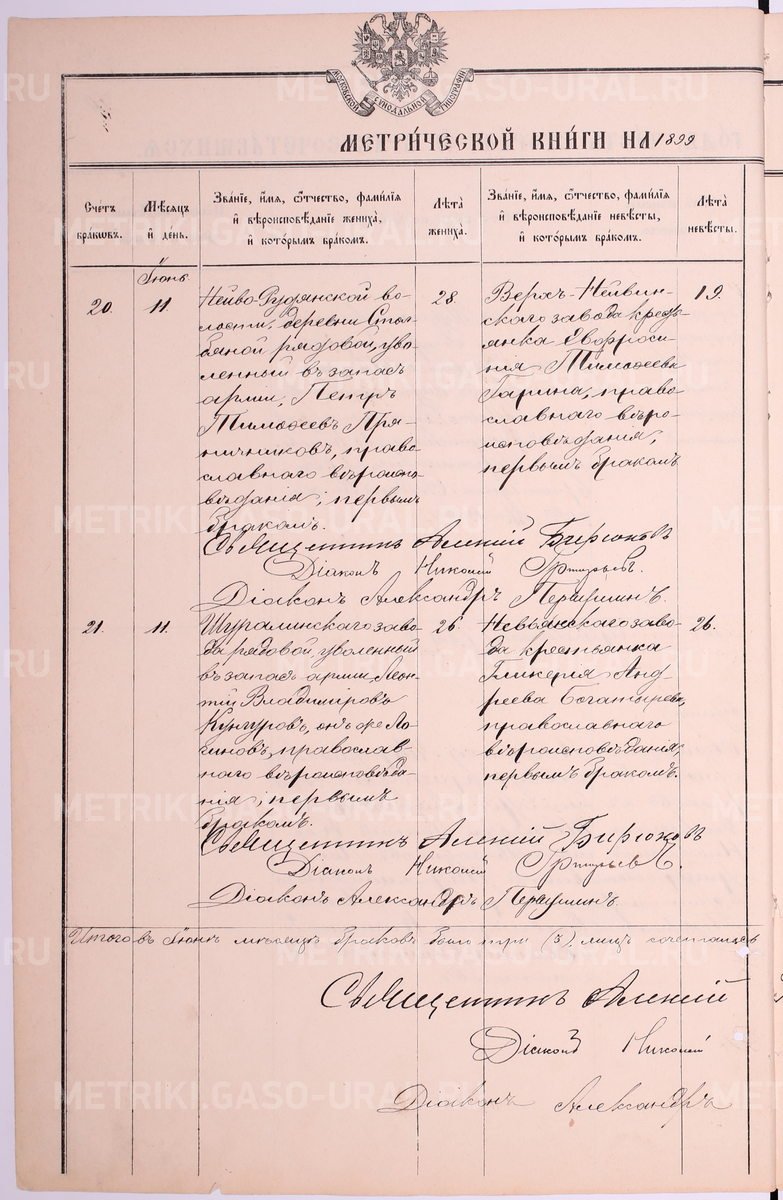 МОСКОВСКОЙ СѴНОДАЛЬНОЙ ТИПОГРАФІИ
МЕТРИ́ЧЕСКОЙ КНИ́ГИ НА 1899
Счетъ бра́кωвъ.
Мѣсяцъ и҆ де́нь.
Зва́ніе, и҆́мя, ѻ҆́тчество, фами́лія и҆ вѣроисповѣ́даніе жениха̀, и҆ кото́рымъ бра́комъ.
Лѣта̀ жениха̀.
Зва́ніе, и҆́мя, ѻ҆́тчество, фами́лія и҆ вѣроисповѣ́даніе невѣ́сты, и҆ кото́рымъ бра́комъ.
Лѣта̀ невѣ́сты.
Іюнь
20.
11
Нейво-Рудянской во-
лости, деревни Стол-
бяной рядовой, уво-
ленный въ запасъ
арміи, Петръ
Тимоѳеевъ Пря-
ничниковъ, право-
славнаго вѣроиспо-
вѣданія; первымъ
бракомъ.
28.
Верхъ-Нейвин-
скаго завода кресть-
янка Евфроси-
нія Тимоѳеева
Гарина, право-
славнаго вѣро-
исповѣданія,
первымъ бракомъ
19.
Священникъ Алексій Бирюковъ
Діаконъ Николай Григорьевъ.
Діаконъ Александръ Первушинъ.
21.
11.
Шуралинскаго заво-
да рядовой, уволенный
въ запасъ арміи, Леон-
тій Владиміровъ
Кунгуровъ, онъ же Ло-
гиновъ, православ-
наго вѣроисповѣда-
нія; первымъ
бракомъ.
26.
Невьянскаго заво-
да крестьянка
Гликерія Анд-
реева Богатырева,
православнаго
вѣроисповѣданія,
первымъ бракомъ.
26.
Священникъ Алексій Бирюковъ
Діаконъ Николай Григорьевъ.
Діаконъ Александръ Первушинъ.
Итого въ Іюнѣ мѣсяцѣ браковъ было три (3), лицъ сочетавшев
Священникъ Алексій
Діаконъ Николай
Діаконъ Александръ
METRIKI.GASO-URAL.RU